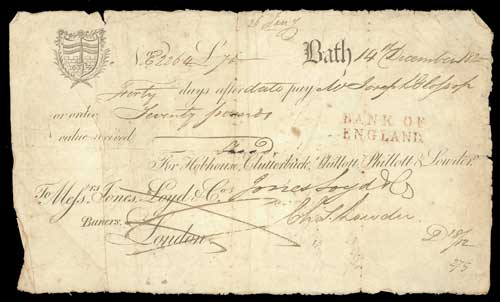 26 Jany
No E2264 £70 Bath 14th December 1820
Forty days after date pay Mr Joseph Clossop
or order Seventy pounds
value received
BANK OF
ENGLAND
For Hobhouse, Clutterbuck, Phillott, Phillott & Lowder.
To Messrs. Jones, Loyd & Co. Jones Loyd & Co
Bankers. Chs Lowder
London